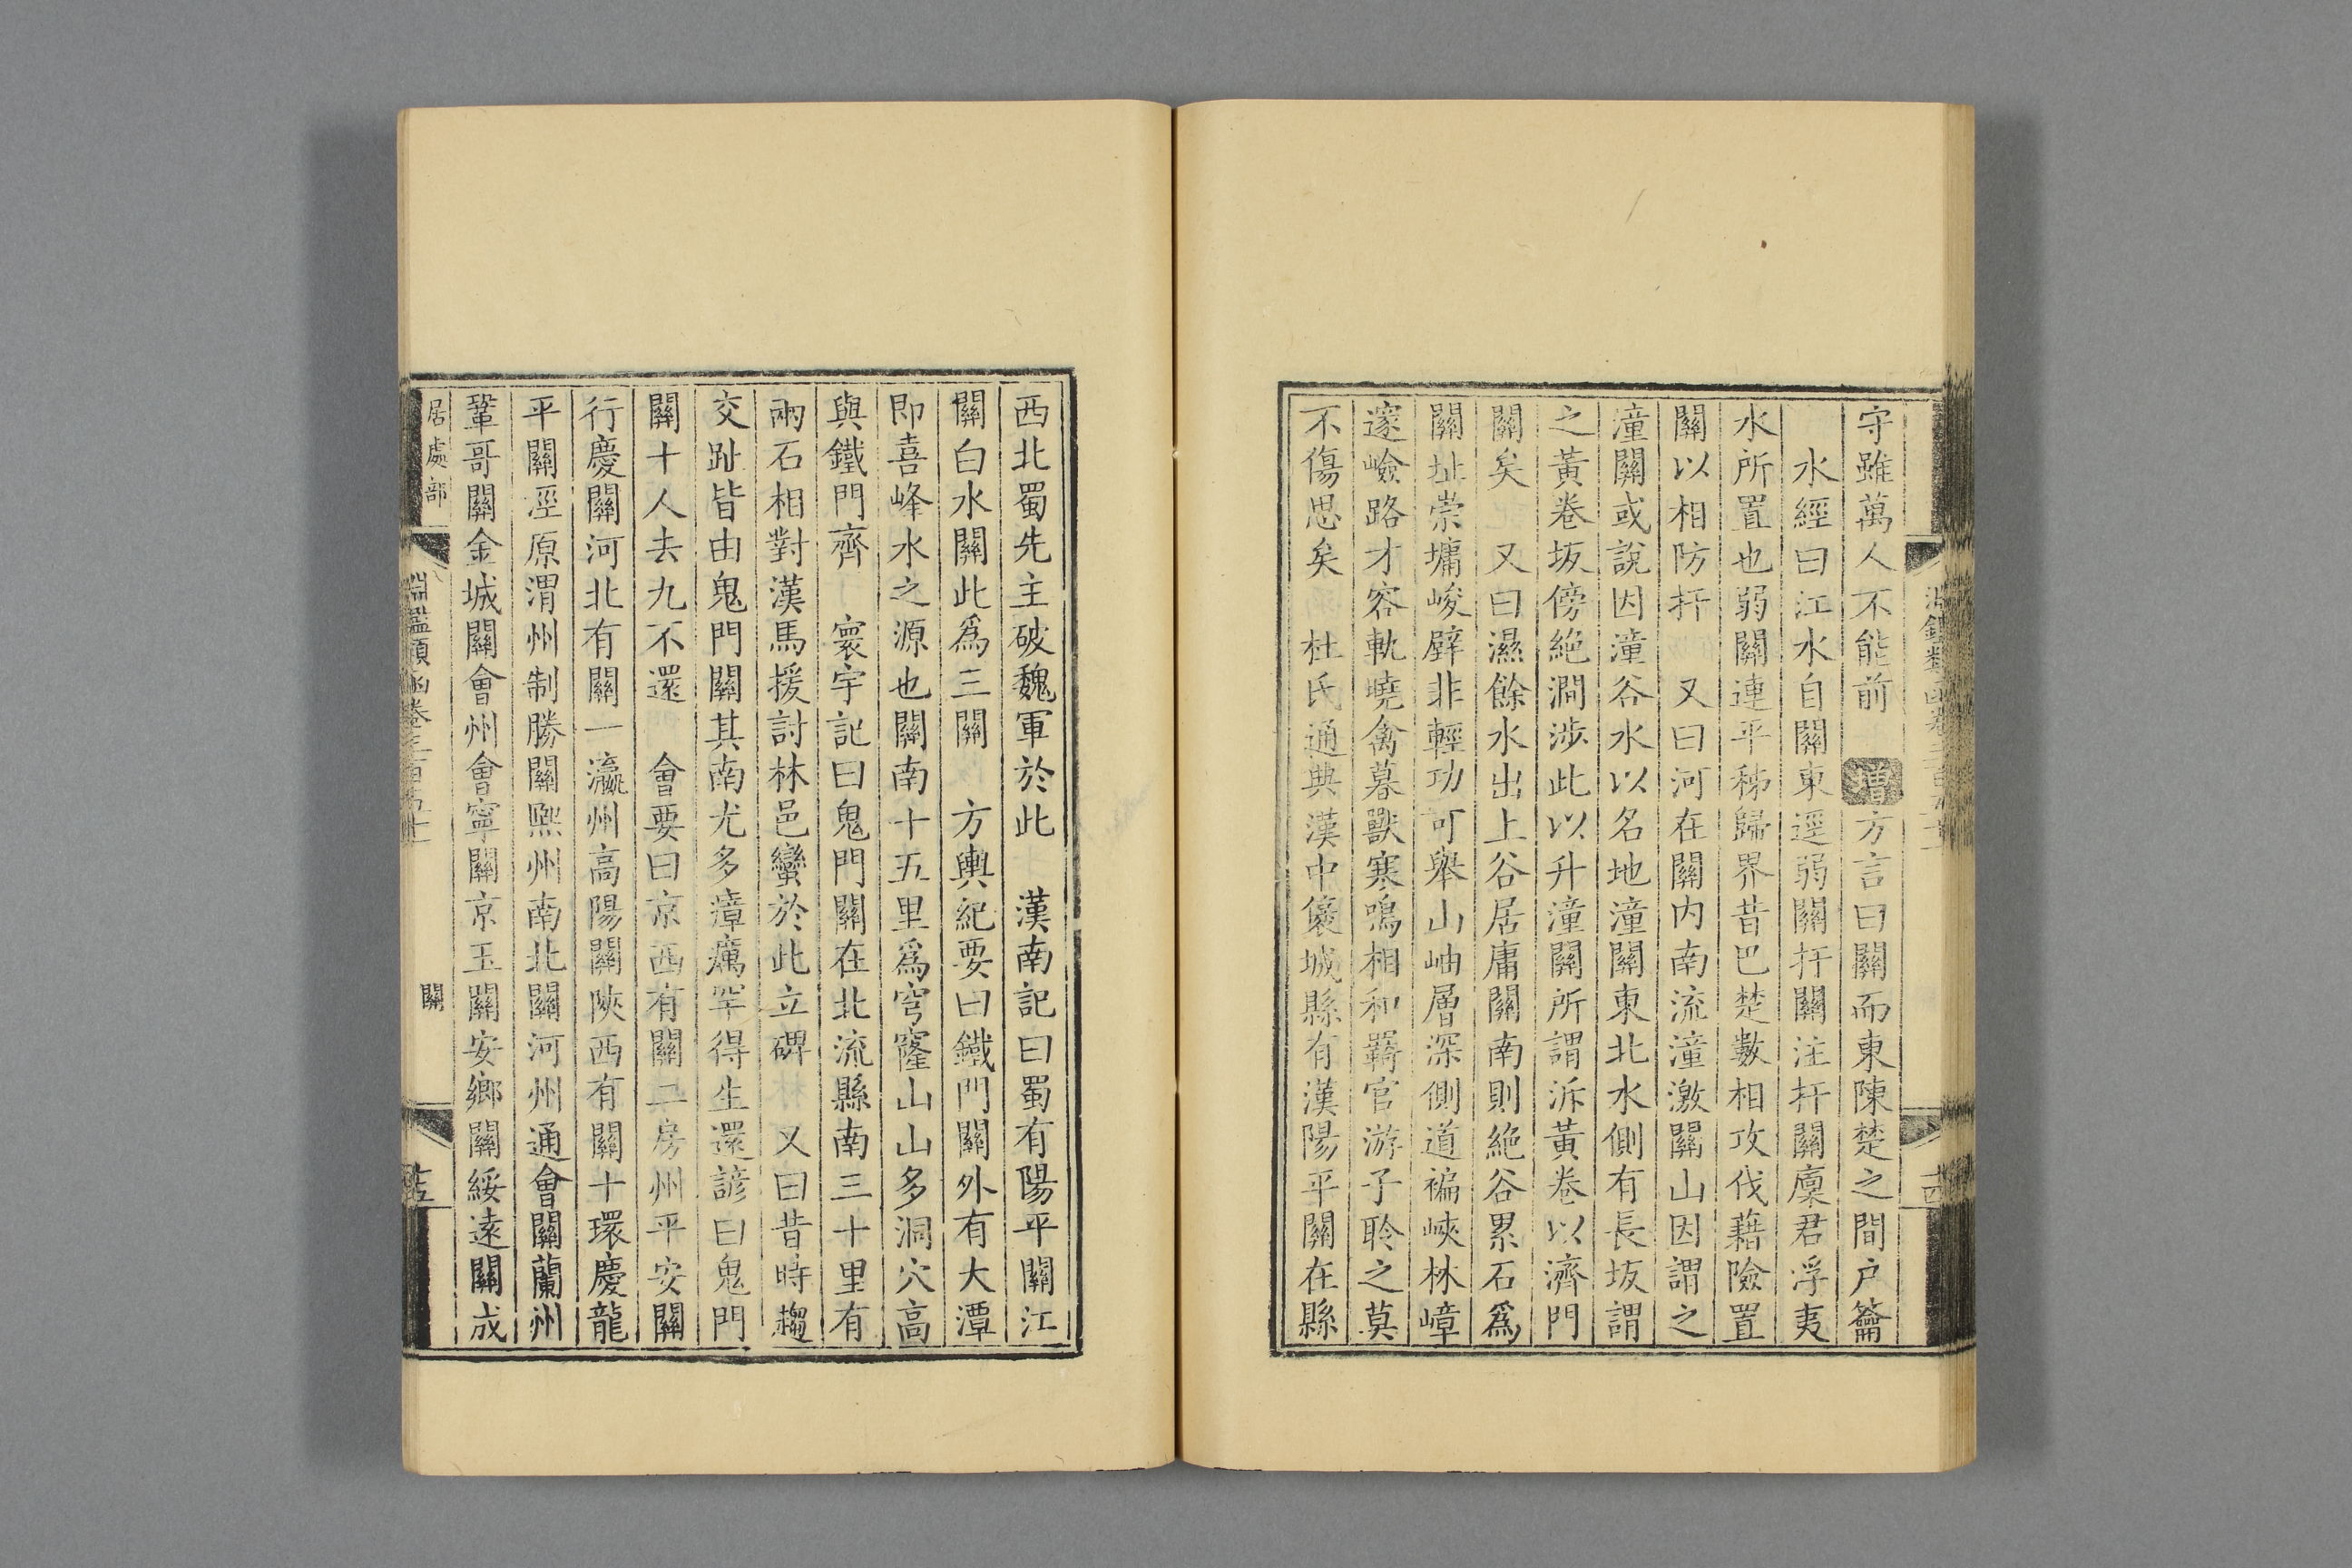 守雖萬人不能前　增方言曰關而東陳楚之間户籥
水經曰江水自關東逕弱關扞關注扞關廩君浮夷
水所置也弱關連平秭歸界昔巴楚數相攻伐藉險置
關以相防扞　又曰河在關内南流潼激關山因謂之
潼關或說因潼谷水以名地潼關東北水側有長坂謂
之黃巷坂傍絶澗涉此以升潼關所謂泝黃巷以濟門
關矣　又曰濕餘水出上谷居庸關南則絶谷累石爲
關址崇墉峻壁非輕功可舉山岫層深側道褊峽林嶂
邃嶮路才容軌曉禽暮獸寒鳴相和羇官游子聆之莫
不傷思矣　杜氏通典漢中襃城縣有漢陽平關在縣
西北蜀先主破魏軍於此　漢南記曰蜀有陽平關江
關白水關此爲三關　方輿紀要曰鐵門關外有大潭
即喜峰水之源也關南十五里爲穹窿山山多洞穴高
與鐵門齊　寰宇記曰鬼門關在北流縣南三十里有
兩石相對漢馬援討林邑蠻於此立碑　又曰昔時趨
交趾皆由鬼門關其南尤多瘴癘罕得生還諺曰鬼門
關十人去九不還　會要曰京西有關二房州平安關
行慶關河北有關一瀛州高陽關陜西有關十環慶龍
平關涇原渭州制勝關熙州南北關河州通會關蘭州
鞏哥關金城關會州會寧關京玉關安鄉關綏遠關成
居處部
淵鑑類函卷三百五十
關